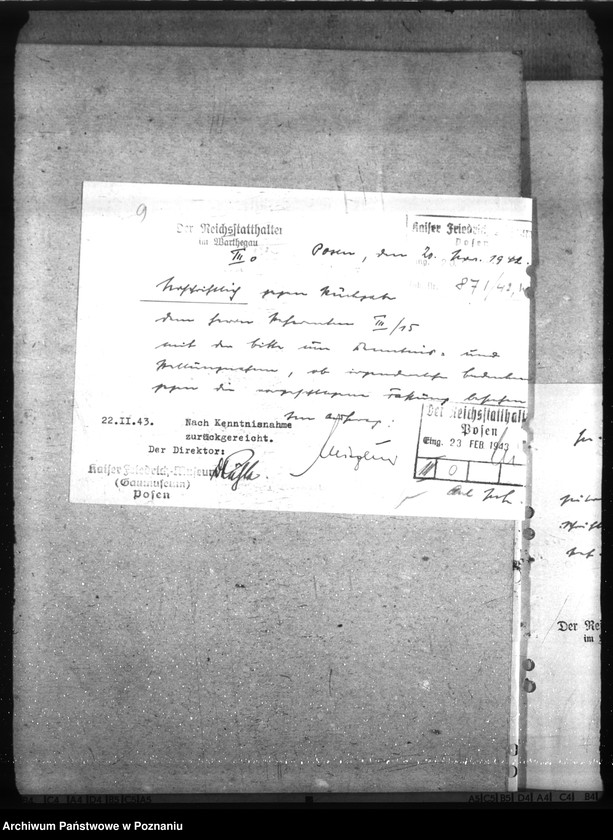 9
Der Reichsstatthalter
im Warthegau
III o
Posen, den 20. Nov. 1942.
Kaiser Friedrich
Posen
871/42
Urschriftlich gegen Rückgabe
dem Herrn Referenten III/15
mit der Bitte um Kenntnis- und
Stellungnahme, ob irgendwelche Bedenken
gegen die vorgeschlagene Fassung bestehen
Im Auftrag:
22.II.43. Nach Kenntnisnahme
zurückgereicht.
Der Direktor:
Kaiser Friedrich-Museum
(Gaumuseum)
Posen
Der Reichsstatthalt
Posen
Eing. 23 FEB 1943
III 0
Der Rei
im
A3 C5 B5 D4 A4 C4 B4
Archiwum Państwowe w Poznaniu